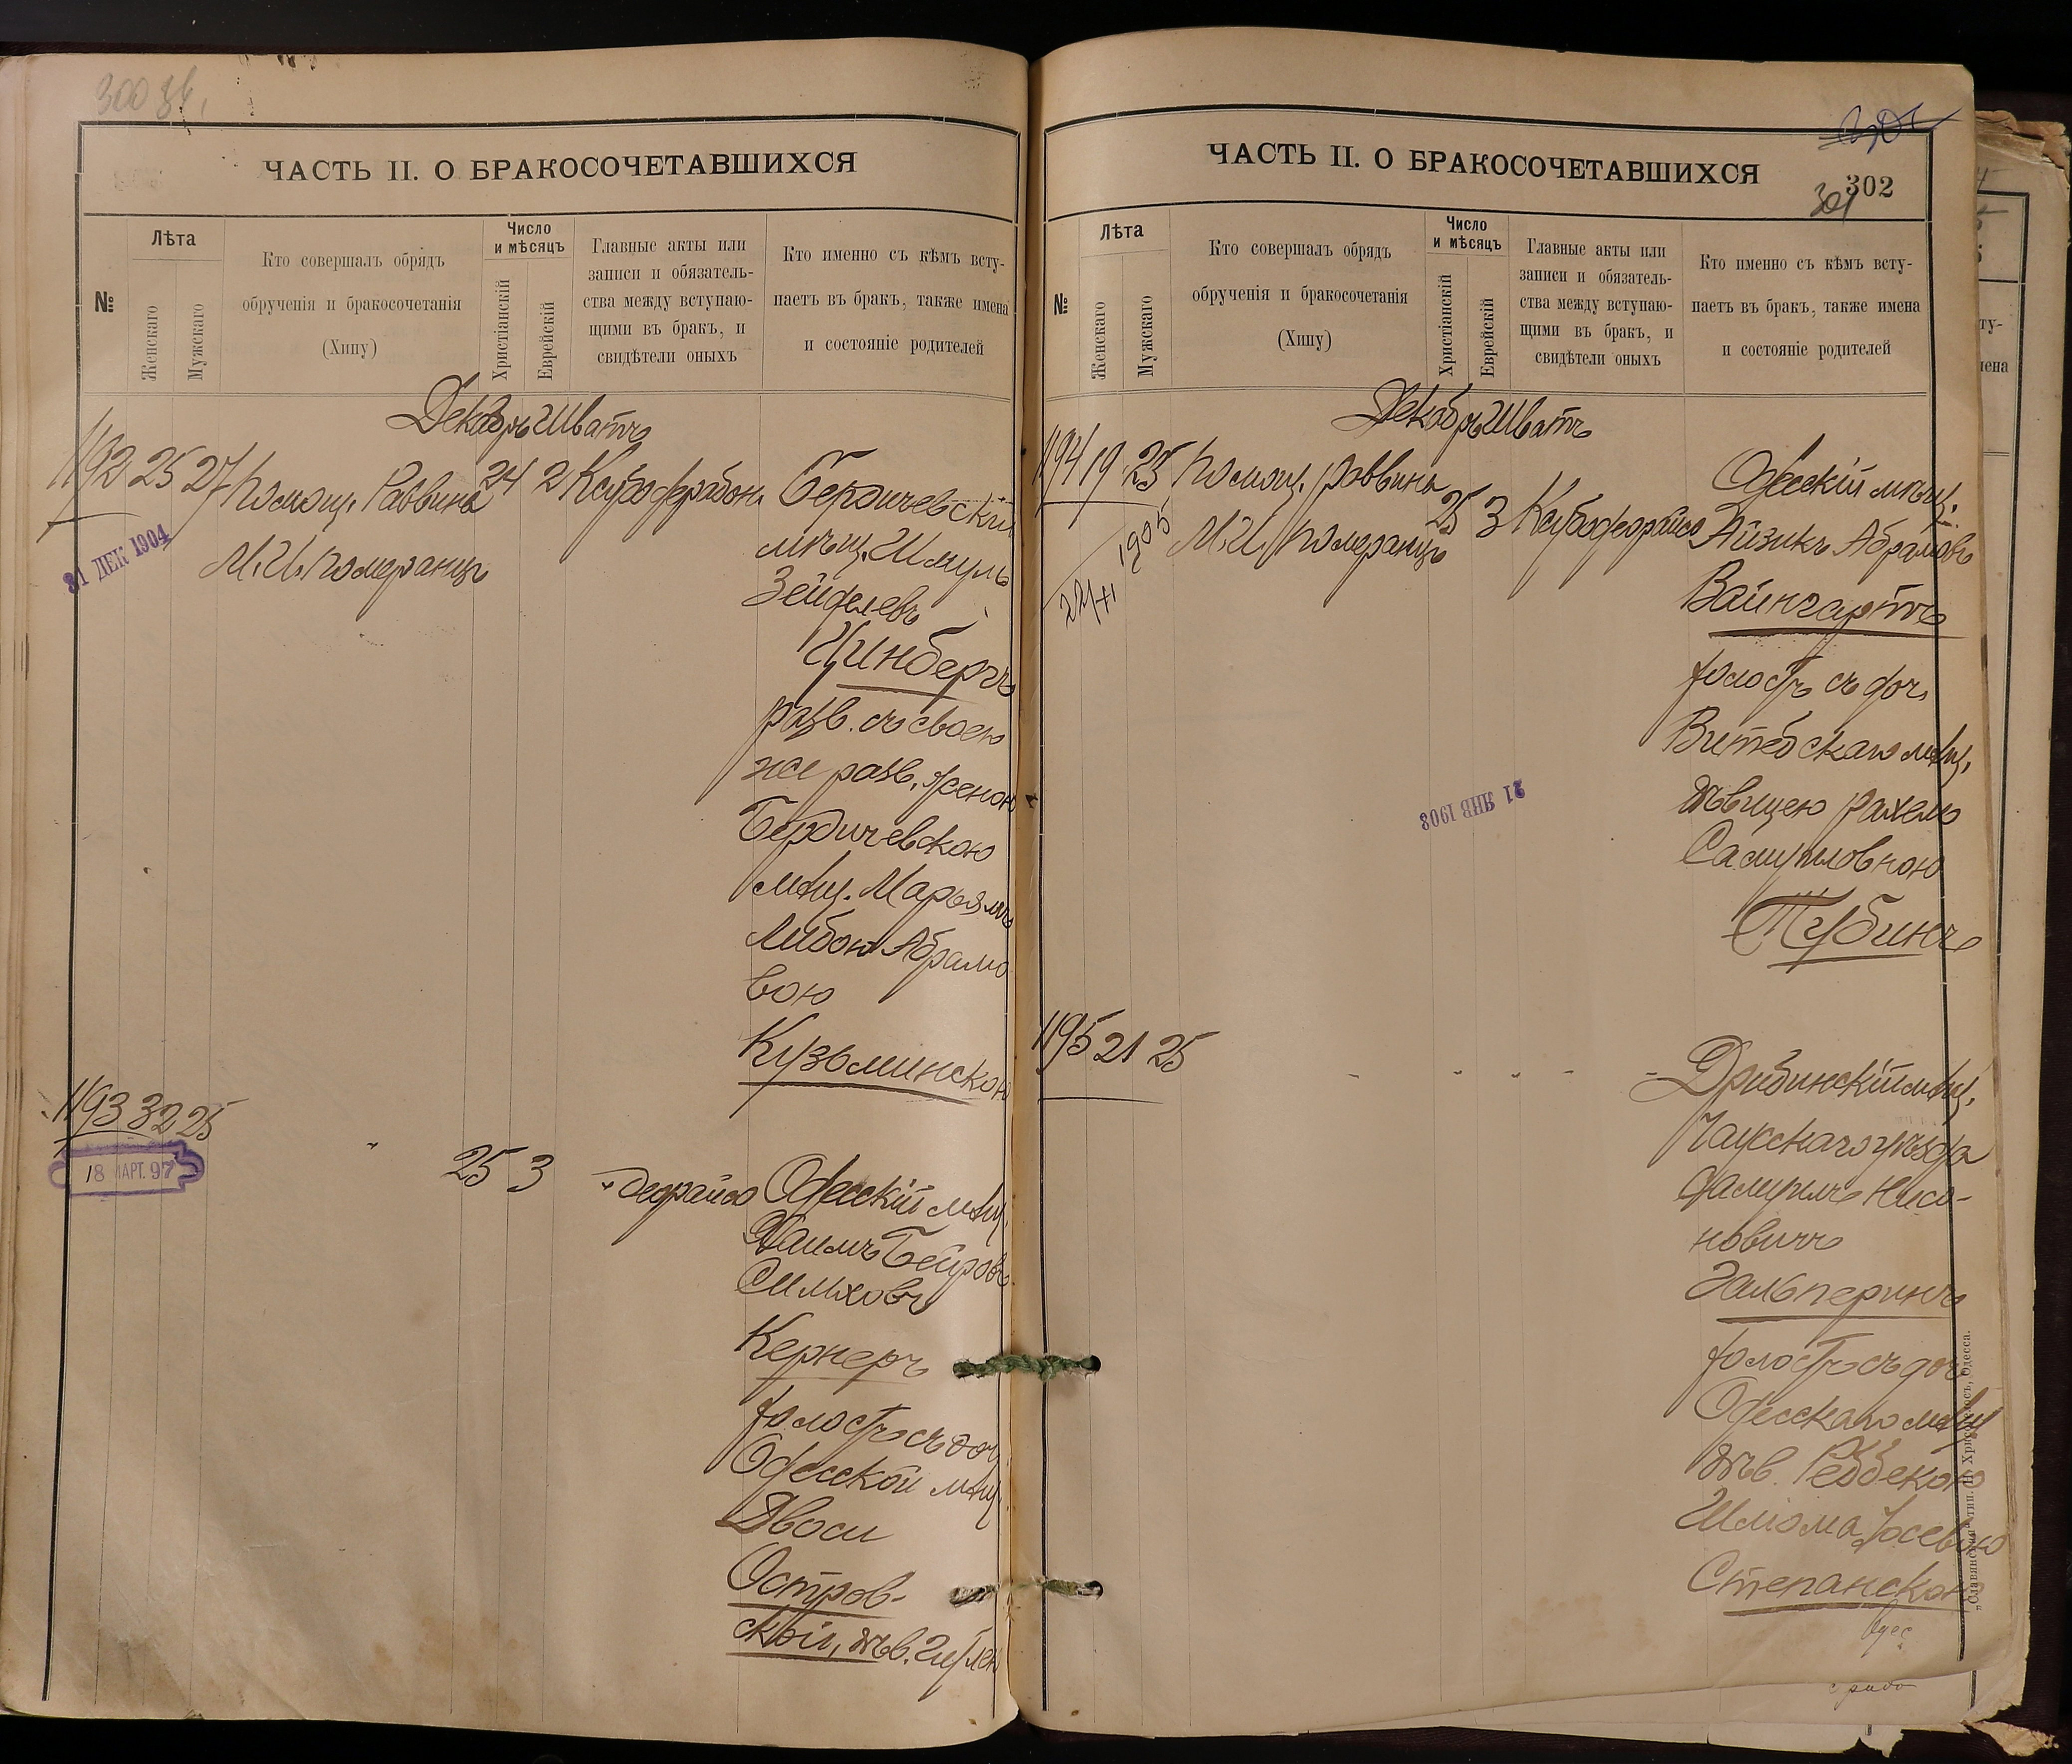 300 зв.
ЧАСТЬ II. О БРАКОСОЧЕТАВШИХСЯ
№
Лѣта
Женскаго
Мужскаго
Кто совершалъ обрядъ
обрученія и бракосочетанія
(Хипу)
Число
и мѣсяцъ
Христіанскій
Еврейскій
Главные акты или
записи и обязатель-
ства между вступаю-
щими въ бракъ, и
свидѣтели оныхъ
Кто именно съ кѣмъ всту-
паетъ въ бракъ, также имена
и состояніе родителей
Декабрь Шватъ
1192 25 27 Помощ. Раввина 24 2 Бердичевскій
31 ДЕК 1904
М. И. Померанцъ
мѣщ. Шмуль
Зейделевъ
Цинбергъ
разв. съ своею
же разв. женою
Бердичевскою
мѣщ. Марьямъ
Либою Абрамо
вою
Кузьминскою
1193 32 25
18 МАРТ. 97
25 3 Одесскій мѣщ.
Хаимъ Беировъ
Симховъ
Кернеръ
холостъ съ доч.
Одесской мѣщ.
Двоси
Остров-
ской, дѣв.
ЧАСТЬ II. О БРАКОСОЧЕТАВШИХСЯ
301
302
№
Лѣта
Женскаго
Мужскаго
Кто совершалъ обрядъ
обрученія и бракосочетанія
(Хипу)
Число
и мѣсяцъ
Христіанскій
Еврейскій
Главные акты или
записи и обязатель-
ства между вступаю-
щими въ бракъ, и
свидѣтели оныхъ
Кто именно съ кѣмъ всту-
паетъ въ бракъ, также имена
и состояніе родителей
Декабрь Шватъ
1194 19 25 Помощ. раввина 25 3 Одесскій мѣщ.
М. И. Померанцъ
Айзикъ Абрамовъ
1905
Вайнгартъ
холостъ съ доч.
Витебскаго мѣщ.
21 ЯНВ 1903
дѣвицею Рахелью
Самуиловною
Тубинъ
1195 21 25
Дрибинскій мѣщ.
Чаусскаго уѣзда
Самуилъ Нисо-
новичъ
Гальперинъ
холостъ съ доч.
Одесскаго мѣщ.
дѣв. Ревекою
Шлиома Іосевою
Степанскою
„Славянская" тип. Н. Хрисогелосъ, Одесса.